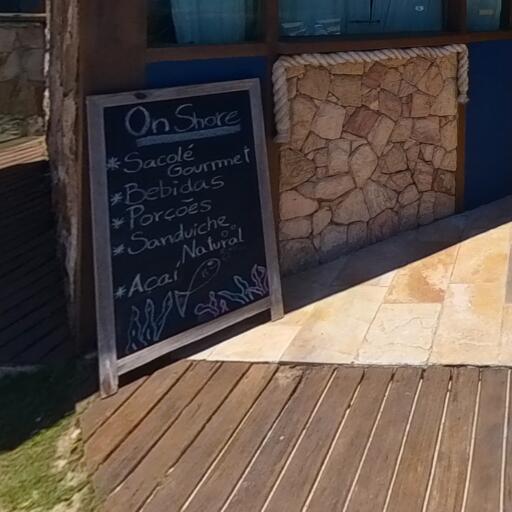 On Shore
* Sacolé
Gourmet
* Bebidas
* Porções
* Sanduiche
Natural
* Açaí